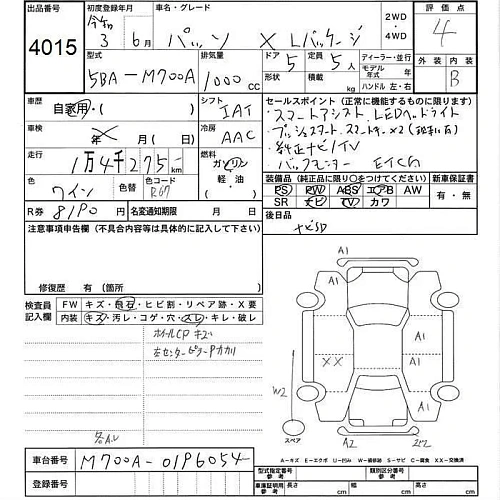 出品番号 初度登録年月 車名・グレード 2WD・4WD 評価点
4015 令和 3年 6月 パッソ X Lパッケージ 4
型式 排気量 ドア 定員 ディーラー・並行 外装 内装
5BA-M700A 1000cc 5 5人 モデル年式 年 B
形状 積載 kg ハンドル 左・右
車歴 自家用・ シフト IAT セールスポイント (正常に機能するものに限ります。)
車検 年(月)日 冷房 AAC ・スマートアシスト LEDヘッドライト
・プッシュスタート スマートキー×2
走行 1万4千275km 燃料 ガソリン 軽油・( ) ・純正ナビ/TV
・バックモニター ETC
色 ワイン 色替 色コード R67 装備品 (純正品に限り○をつけてください。) 新車保証書
PS PW ABS エアB AW 有・無
SR ナビ TV カワ
R券 8190円 名変通知期限 月 日 後日品
ナビSD
注意事項申告欄 (不具合内容等は具体的に記入して下さい)
修復歴 有 (箇所 )
検査員記入欄 FW キズ・飛石・ヒビ割・リペア跡・X要
内装 キズ・汚レ・コゲ・穴・スレ・キレ・破レ
ホイールCP キズ
左センターピラーPカカリ
A1
A1 A1
XX A1
W2 A1
スペア A2
A-キズ E-エクボ U-凹み W-補修跡 S-サビ C-腐食 XX-交換済
車台番号 M700A-0196054
型式指定番号 参考 類別区分番号 参考
車庫証明用 参考 長さ cm 幅 cm 高さ cm